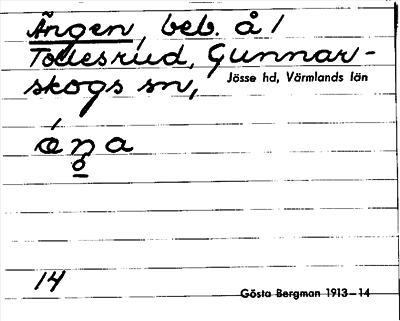 Ängen, beb. å /
Tobesrud, Gunnar-
skogs sn,
Jösse hd, Värmlands län
ǽŋa
14
Gösta Bergman 1913–14